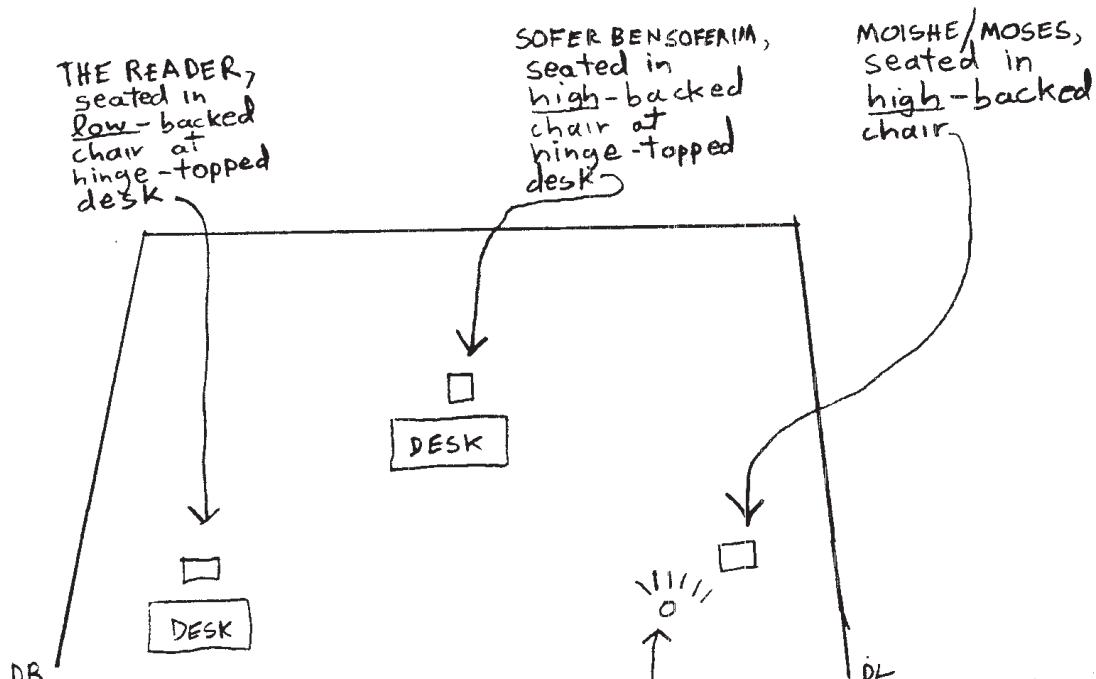 THE READER,
seated in
low-backed
chair at
hinge-topped
desk
SOFER BENSOFERIM,
seated in
high-backed
chair at
hinge-topped
desk
MOISHE/MOSES,
seated in
high-backed
chair
DESK
DESK
DR
DL